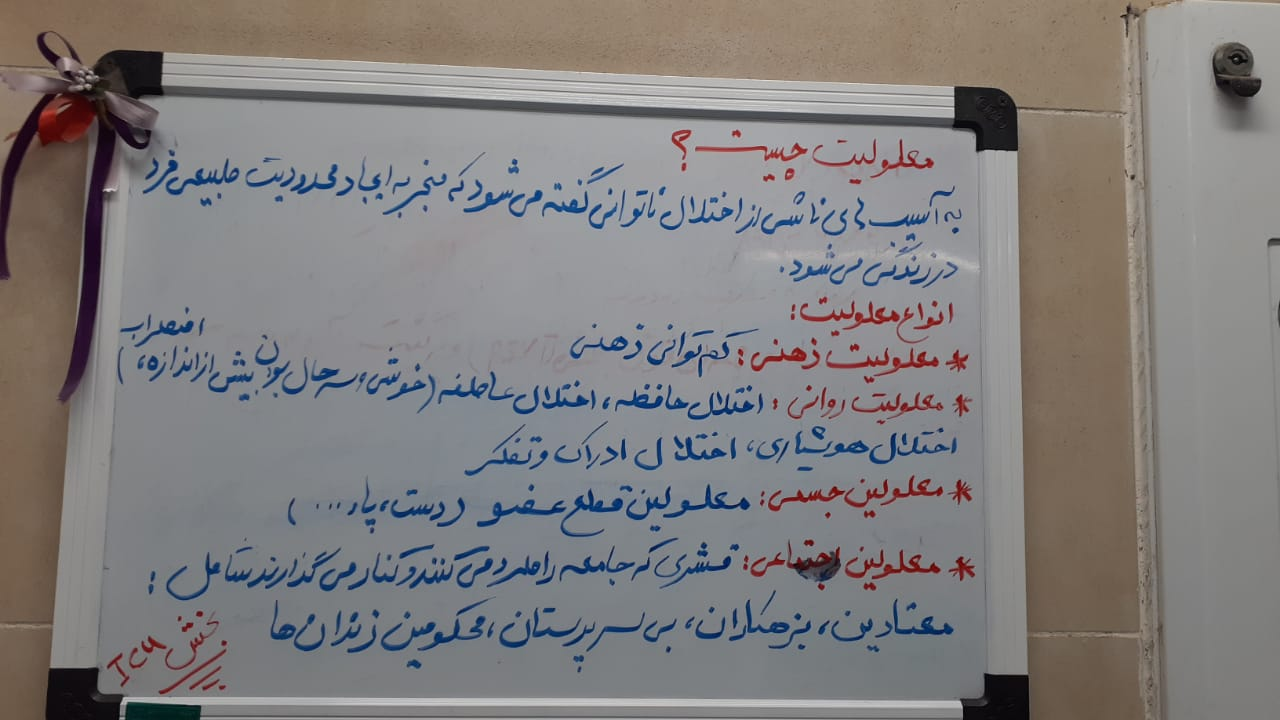 معلولیت چیست ؟
به آسیب های ناشی از اختلال ناتوانی گفته می شود که منجر به ایجاد محدودیت طبیعی فرد
در زندگی می شود.
انواع معلولیت:
* معلولیت ذهنی: کم توانی ذهنی
* معلولیت روانی: اختلال حافظه، اختلال عاطفه (خوشی و سرحال بودن بیش از اندازه، اضطراب)
اختلال هوشیاری، اختلال ادراک و تفکر
* معلولین جسمی: معلولین قطع عضو (دست، پا، ...)
* معلولین اجتماعی: قشری که جامعه را طرد می کنند و کنار می گذارند شامل:
معتادین، بزهکاران، بی سرپرستان، محکومین زندان ها
بخش ICU